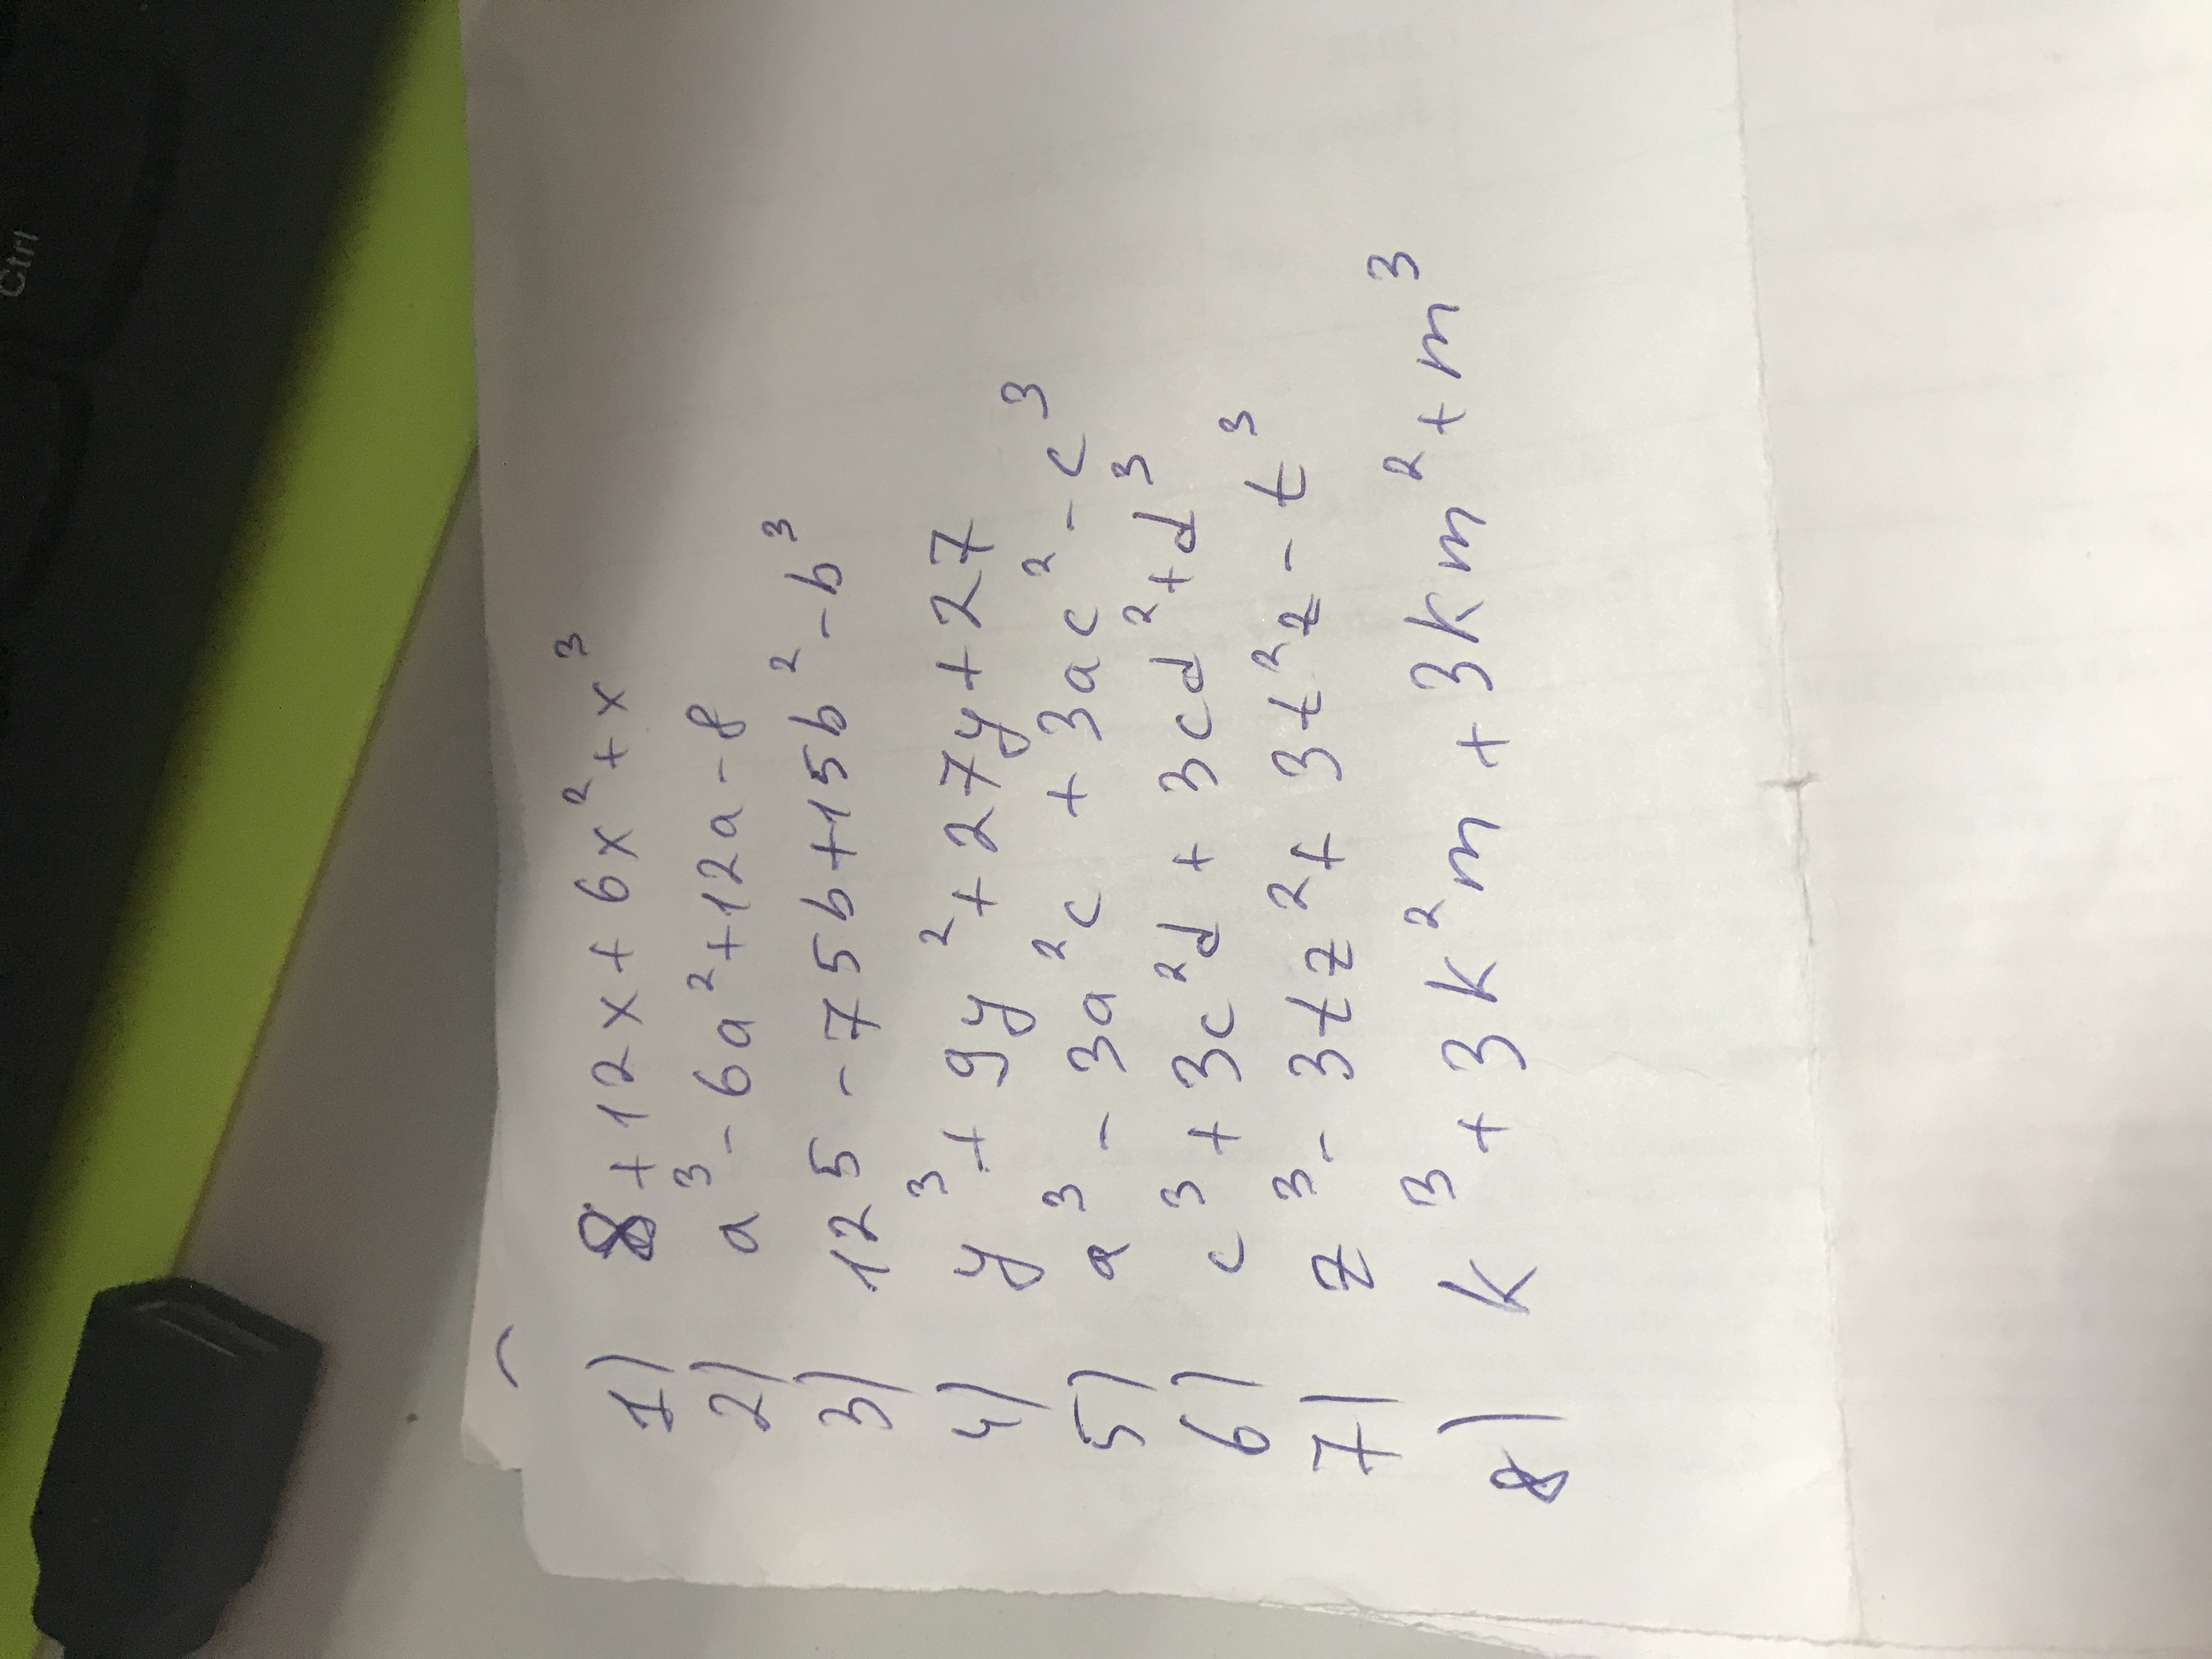 1) 8 + 12x + 6x² + x³
2) a³ - 6a² + 12a - 8
3) 125 - 75b + 15b² - b³
4) y³ + 9y² + 27y + 27
5) a³ - 3a²c + 3ac² - c³
6) c³ + 3c²d + 3cd² + d³
7) z³ - 3tz² + 3t²z - t³
8) k³ + 3k²m + 3km² + m³
Ctrl